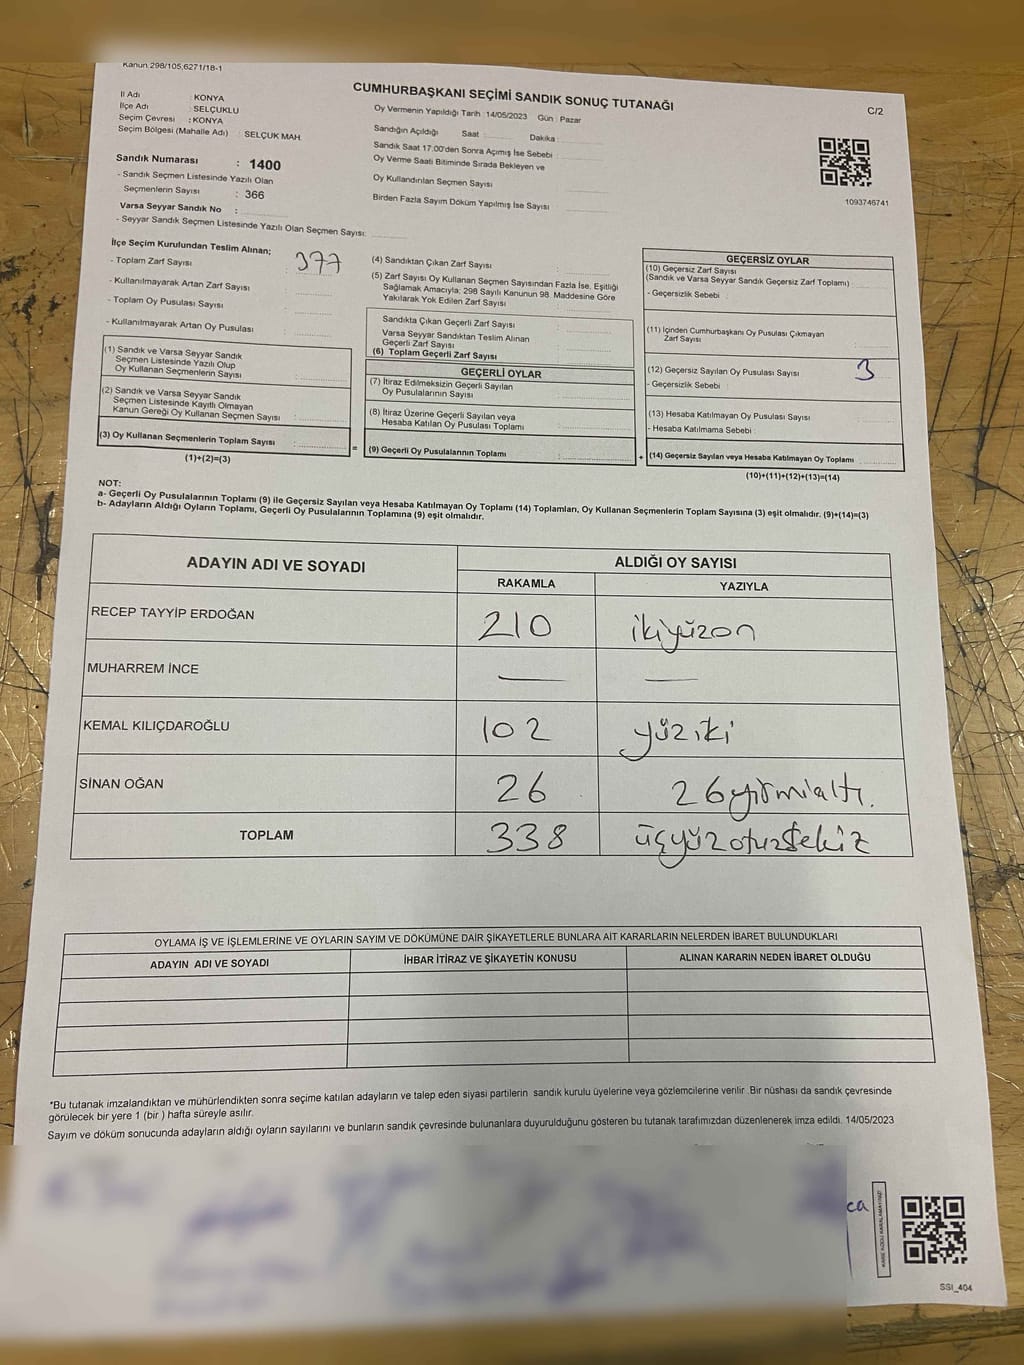 Kanun 298/105,6271/18-1
CUMHURBAŞKANI SEÇİMİ SANDIK SONUÇ TUTANAĞI
C/2
İl Adı : KONYA
İlçe Adı : SELÇUKLU
Seçim Çevresi : KONYA
Seçim Bölgesi (Mahalle Adı) : SELÇUK MAH.
Sandık Numarası : 1400
- Sandık Seçmen Listesinde Yazılı Olan
Seçmenlerin Sayısı : 366
Varsa Seyyar Sandık No :
- Seyyar Sandık Seçmen Listesinde Yazılı Olan Seçmen Sayısı:
Oy Vermenin Yapıldığı Tarih : 14/05/2023 Gün : Pazar
Sandığın Açıldığı Saat Dakika
Sandık Saat 17:00'den Sonra Açımış İse Sebebi :
Oy Verme Saati Bitiminde Sırada Bekleyen ve
Oy Kullandırılan Seçmen Sayısı
Birden Fazla Sayım Döküm Yapılmış İse Sayısı
1093746741
İlçe Seçim Kurulundan Teslim Alınan;
- Toplam Zarf Sayısı : 377
- Kullanılmayarak Artan Zarf Sayısı :
- Toplam Oy Pusulası Sayısı :
- Kullanılmayarak Artan Oy Pusulası :
(1) Sandık ve Varsa Seyyar Sandık
Seçmen Listesinde Yazılı Olup
Oy Kullanan Seçmenlerin Sayısı
(2) Sandık ve Varsa Seyyar Sandık
Seçmen Listesinde Kayıtlı Olmayan
Kanun Gereği Oy Kullanan Seçmen Sayısı
(3) Oy Kullanan Seçmenlerin Toplam Sayısı
(1)+(2)=(3)
(4) Sandıktan Çıkan Zarf Sayısı
(5) Zarf Sayısı Oy Kullanan Seçmen Sayısından Fazla İse, Eşitliği
Sağlamak Amacıyla; 298 Sayılı Kanunun 98. Maddesine Göre
Yakılarak Yok Edilen Zarf Sayısı
Sandıkta Çıkan Geçerli Zarf Sayısı
Varsa Seyyar Sandıktan Teslim Alınan
Geçerli Zarf Sayısı
(6) Toplam Geçerli Zarf Sayısı
GEÇERLİ OYLAR
(7) İtiraz Edilmeksizin Geçerli Sayılan
Oy Pusulalarının Sayısı
(8) İtiraz Üzerine Geçerli Sayılan veya
Hesaba Katılan Oy Pusulası Toplamı
= (9) Geçerli Oy Pusulalarının Toplamı
GEÇERSİZ OYLAR
(10) Geçersiz Zarf Sayısı
(Sandık ve Varsa Seyyar Sandık Geçersiz Zarf Toplamı)
- Geçersizlik Sebebi :
(11) İçinden Cumhurbaşkanı Oy Pusulası Çıkmayan
Zarf Sayısı
(12) Geçersiz Sayılan Oy Pusulası Sayısı : 3
- Geçersizlik Sebebi :
(13) Hesaba Katılmayan Oy Pusulası Sayısı
- Hesaba Katılmama Sebebi :
+ (14) Geçersiz Sayılan veya Hesaba Katılmayan Oy Toplamı
(10)+(11)+(12)+(13)=(14)
NOT:
a- Geçerli Oy Pusulalarının Toplamı (9) ile Geçersiz Sayılan veya Hesaba Katılmayan Oy Toplamı (14) Toplamları, Oy Kullanan Seçmenlerin Toplam Sayısına (3) eşit olmalıdır. (9)+(14)=(3)
b- Adayların Aldığı Oyların Toplamı, Geçerli Oy Pusulalarının Toplamına (9) eşit olmalıdır.
ADAYIN ADI VE SOYADI ALDIĞI OY SAYISI
RAKAMLA YAZIYLA
RECEP TAYYİP ERDOĞAN 210 ikiyüzon
MUHARREM İNCE — —
KEMAL KILIÇDAROĞLU 102 yüziki
SİNAN OĞAN 26 26 yirmialtı.
TOPLAM 338 üçyüzotuzsekiz
OYLAMA İŞ VE İŞLEMLERİNE VE OYLARIN SAYIM VE DÖKÜMÜNE DAİR ŞİKAYETLERLE BUNLARA AİT KARARLARIN NELERDEN İBARET BULUNDUKLARI
ADAYIN ADI VE SOYADI İHBAR İTİRAZ VE ŞİKAYETİN KONUSU ALINAN KARARIN NEDEN İBARET OLDUĞU
*Bu tutanak imzalandıktan ve mühürlendikten sonra seçime katılan adayların ve talep eden siyasi partilerin sandık kurulu üyelerine veya gözlemcilerine verilir. Bir nüshası da sandık çevresinde
görülecek bir yere 1 (bir ) hafta süreyle asılır.
Sayım ve döküm sonucunda adayların aldığı oyların sayılarını ve bunların sandık çevresinde bulunanlara duyurulduğunu gösteren bu tutanak tarafımızdan düzenlenerek imza edildi. 14/05/2023
ca
SSI_404